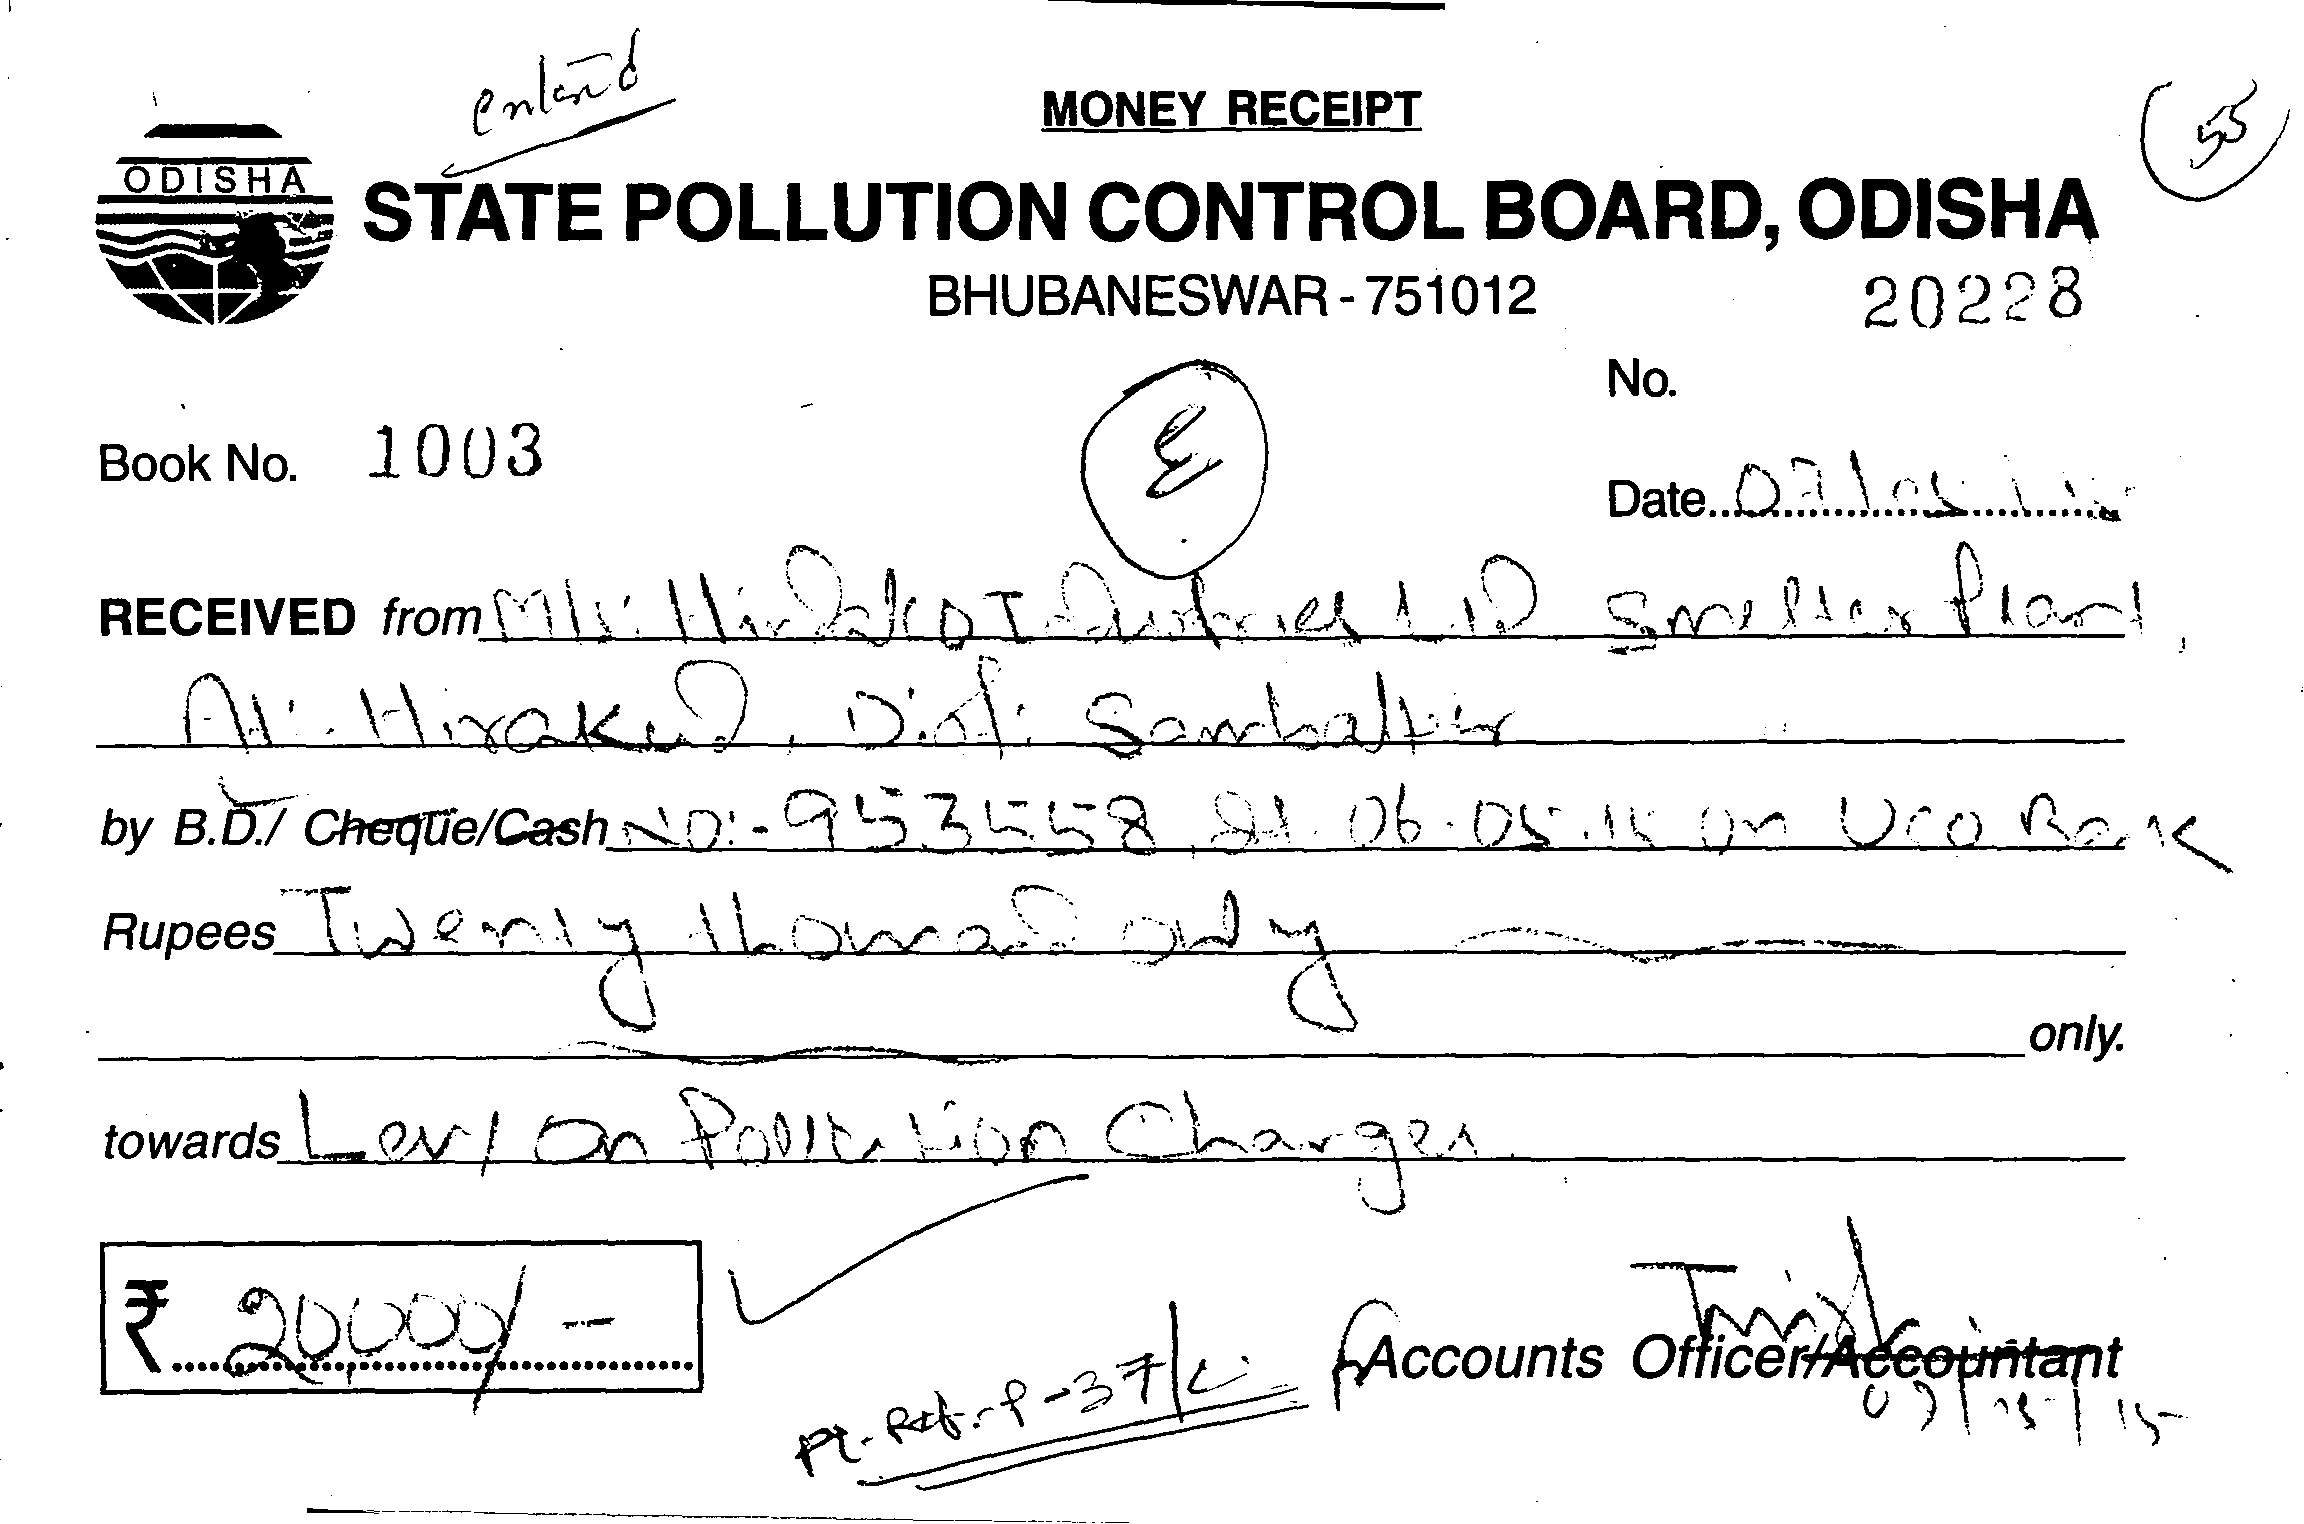 entered
MONEY RECEIPT
55
ODISHA
STATE POLLUTION CONTROL BOARD, ODISHA
BHUBANESWAR - 751012
20228
No.
Book No. 1003
E
Date 07/05/15
RECEIVED from M/s. Hindalco Industries Ltd. Smelter Plant,
At:- Hirakud, Dist: Sambalpur
by B.D./ Cheque/Cash No:- 953558, dt. 06.05.15 on Uco Bank
Rupees Twenty thousand only
only.
towards Levy on Pollution Charges.
₹ 20,000/-
for Accounts Officer/Accountant
07/05/15
Pl. Ref. P-37/C